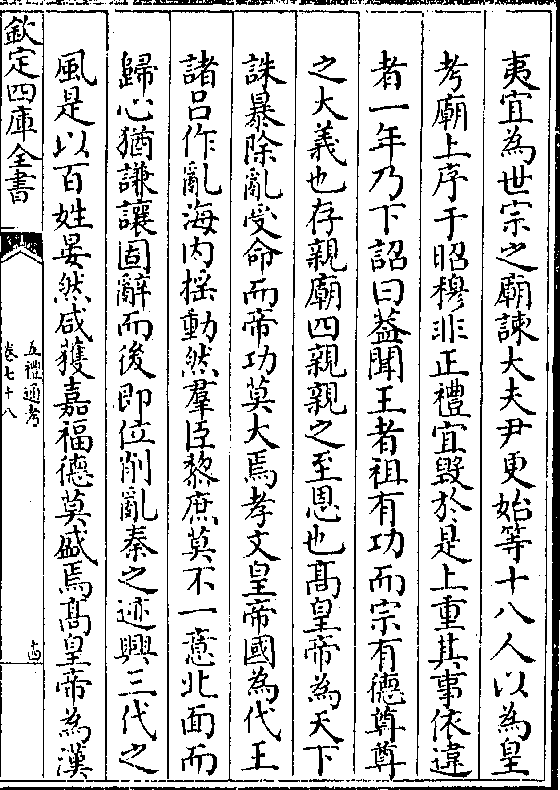 夷宜為世宗之廟諫大夫尹更始等十八人以為皇
考廟上序于昭穆非正禮宜毀於是上重其事依違
者一年乃下詔曰葢聞王者祖有功而宗有德尊尊
之大義也存親廟四親親之至恩也髙皇帝為天下
誅暴除亂受命而帝功莫大焉孝文皇帝國為代王
諸吕作亂海内揺動然羣臣黎庶莫不一意北面而
歸心猶謙讓固辭而後即位削亂秦之迹興三代之
風是以百姓晏然咸獲嘉福德莫盛焉髙皇帝為漢
欽定四庫全書
五禮通考
卷七十八